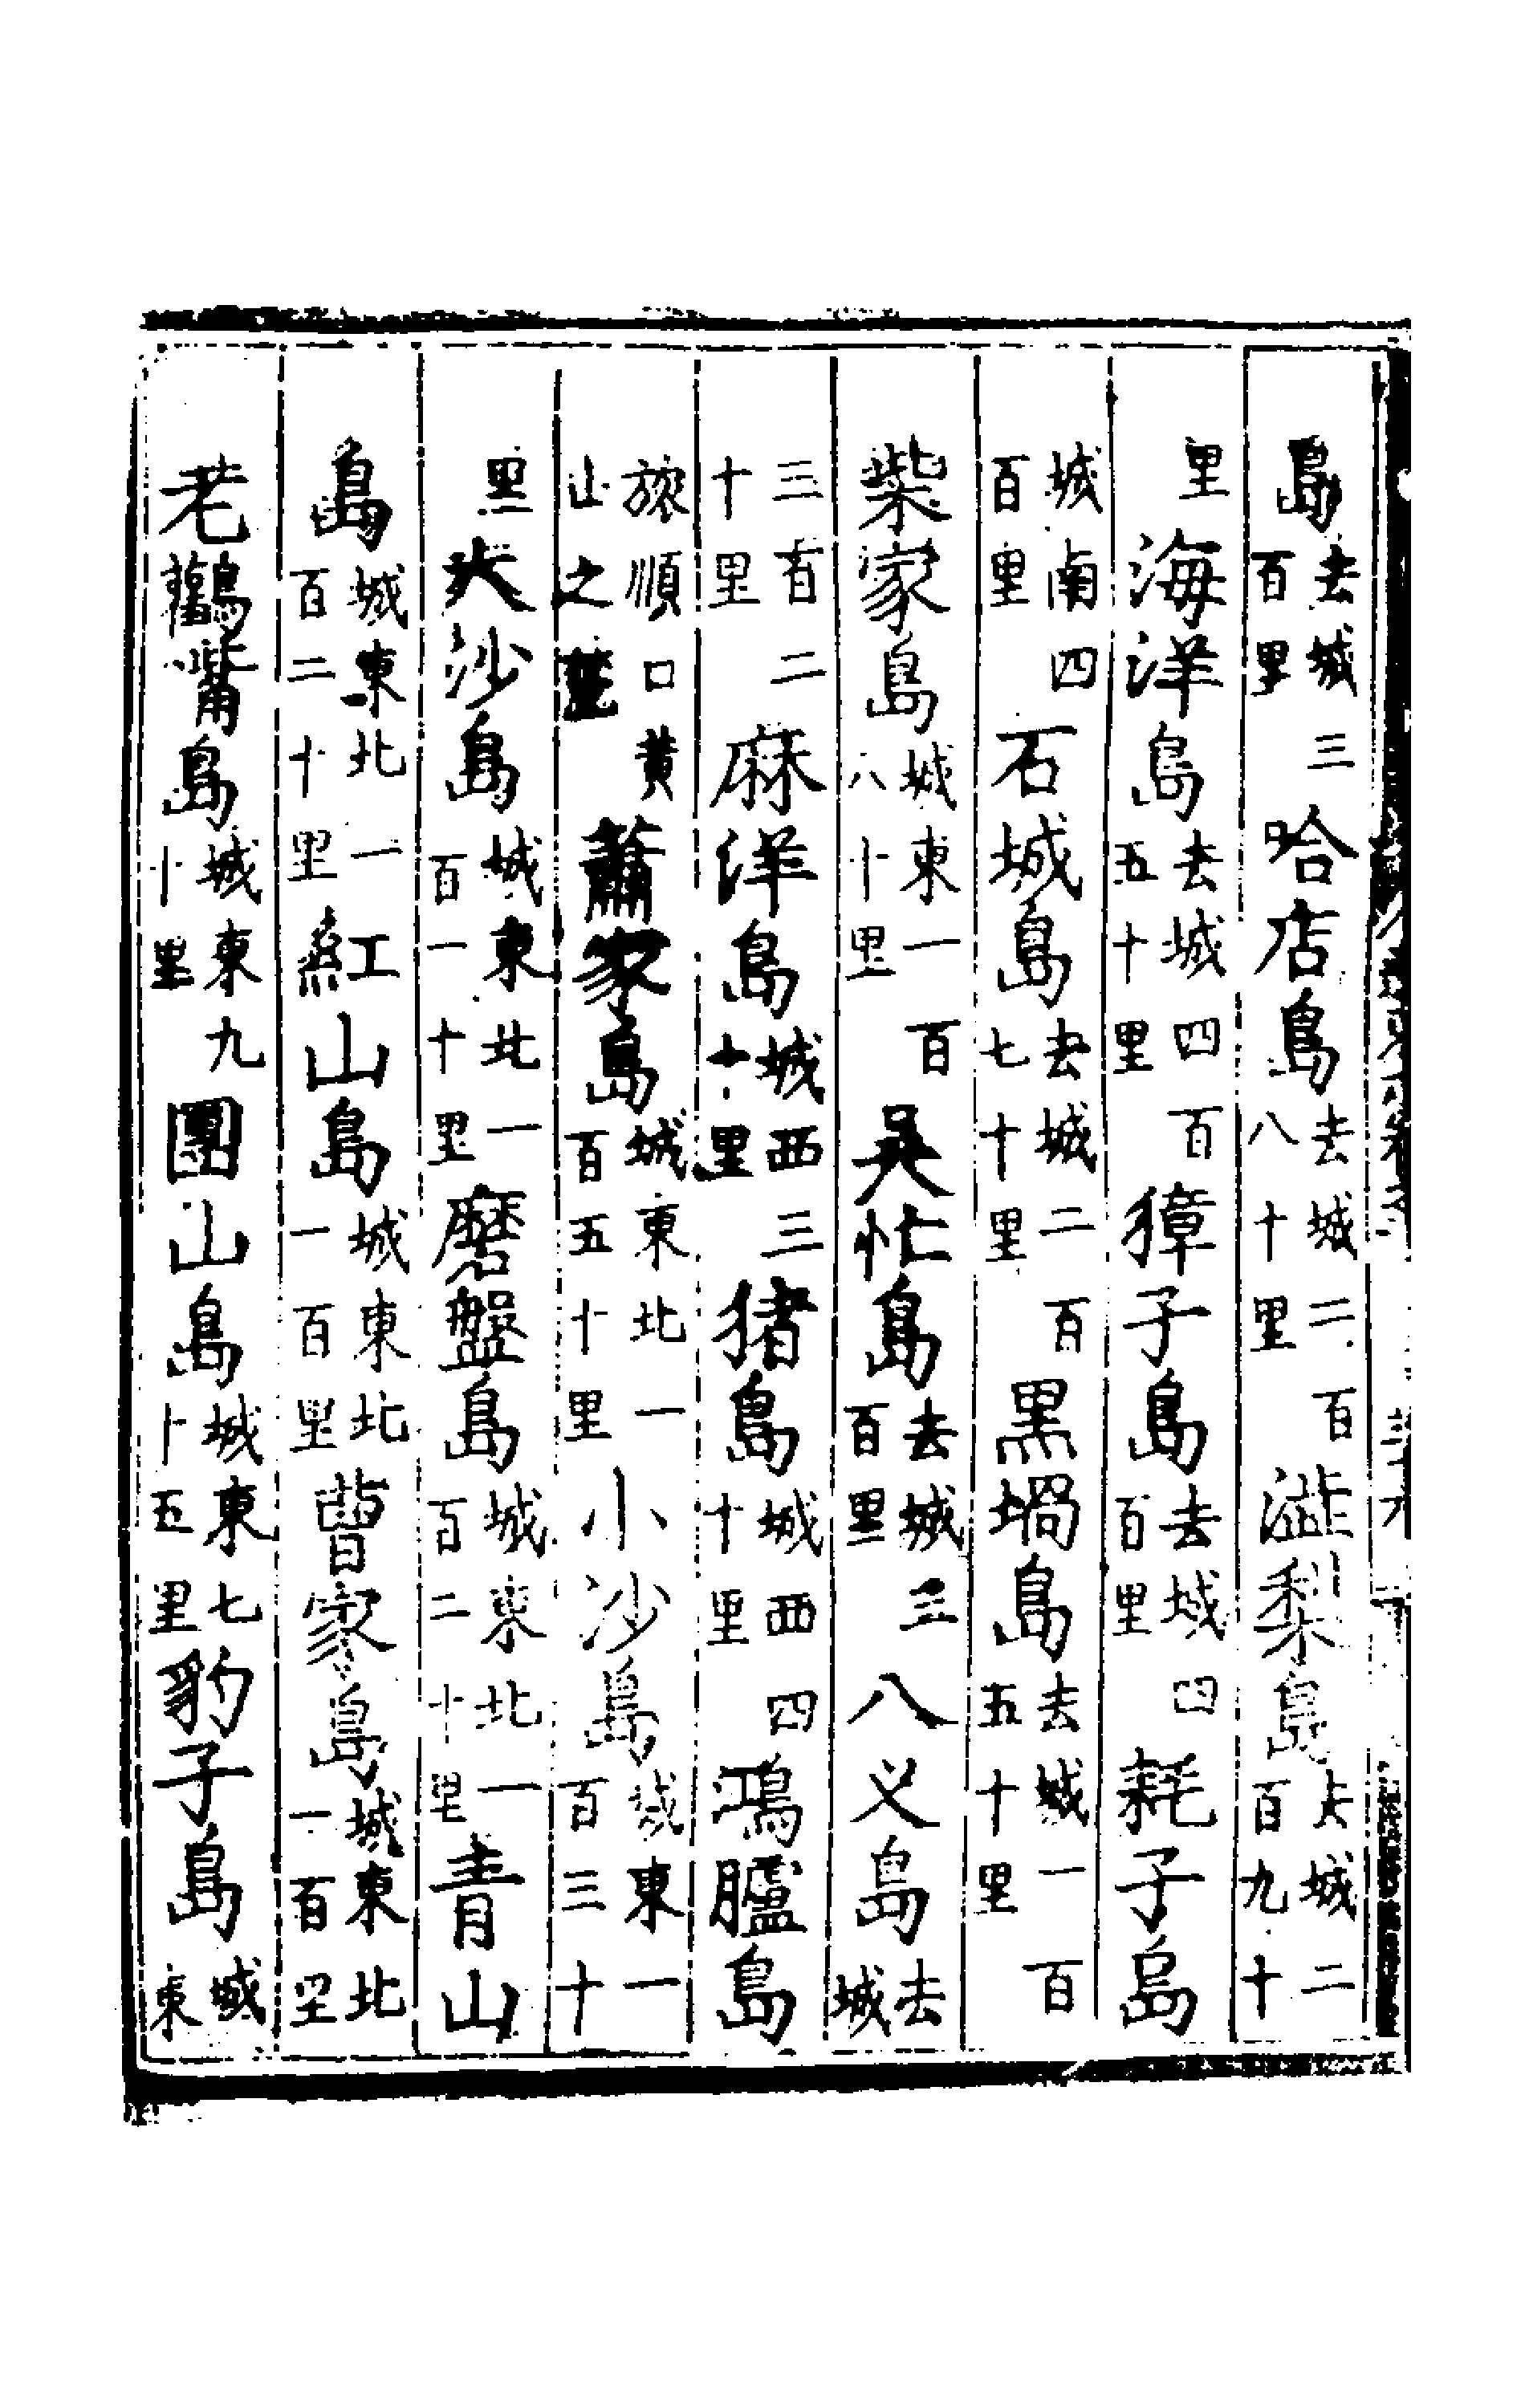 島去城三百里哈店島去城二百八十里澁梨島去城二百九十
里海洋島去城四百五十里獐子島去城四百里耗子島
城南四百里石城島去城二百七十里黑堝島去城一百五十里
柴家島城東一百八十里吳忙島去城三百里八义島去城
三百二十里麻洋島城西三十里猪島城西四十里鴻臚島
旅順口黃山之蕭家島城東北一百五十里小沙島城東一百三十
里大沙島城東北一百一十里磨盤島城東北一百二十里青山
島城東北一百二十里紅山島城東北一百里曹家島城東北一百里
老鸛嘴島城東九十里團山島城東七十五里豹子島城東